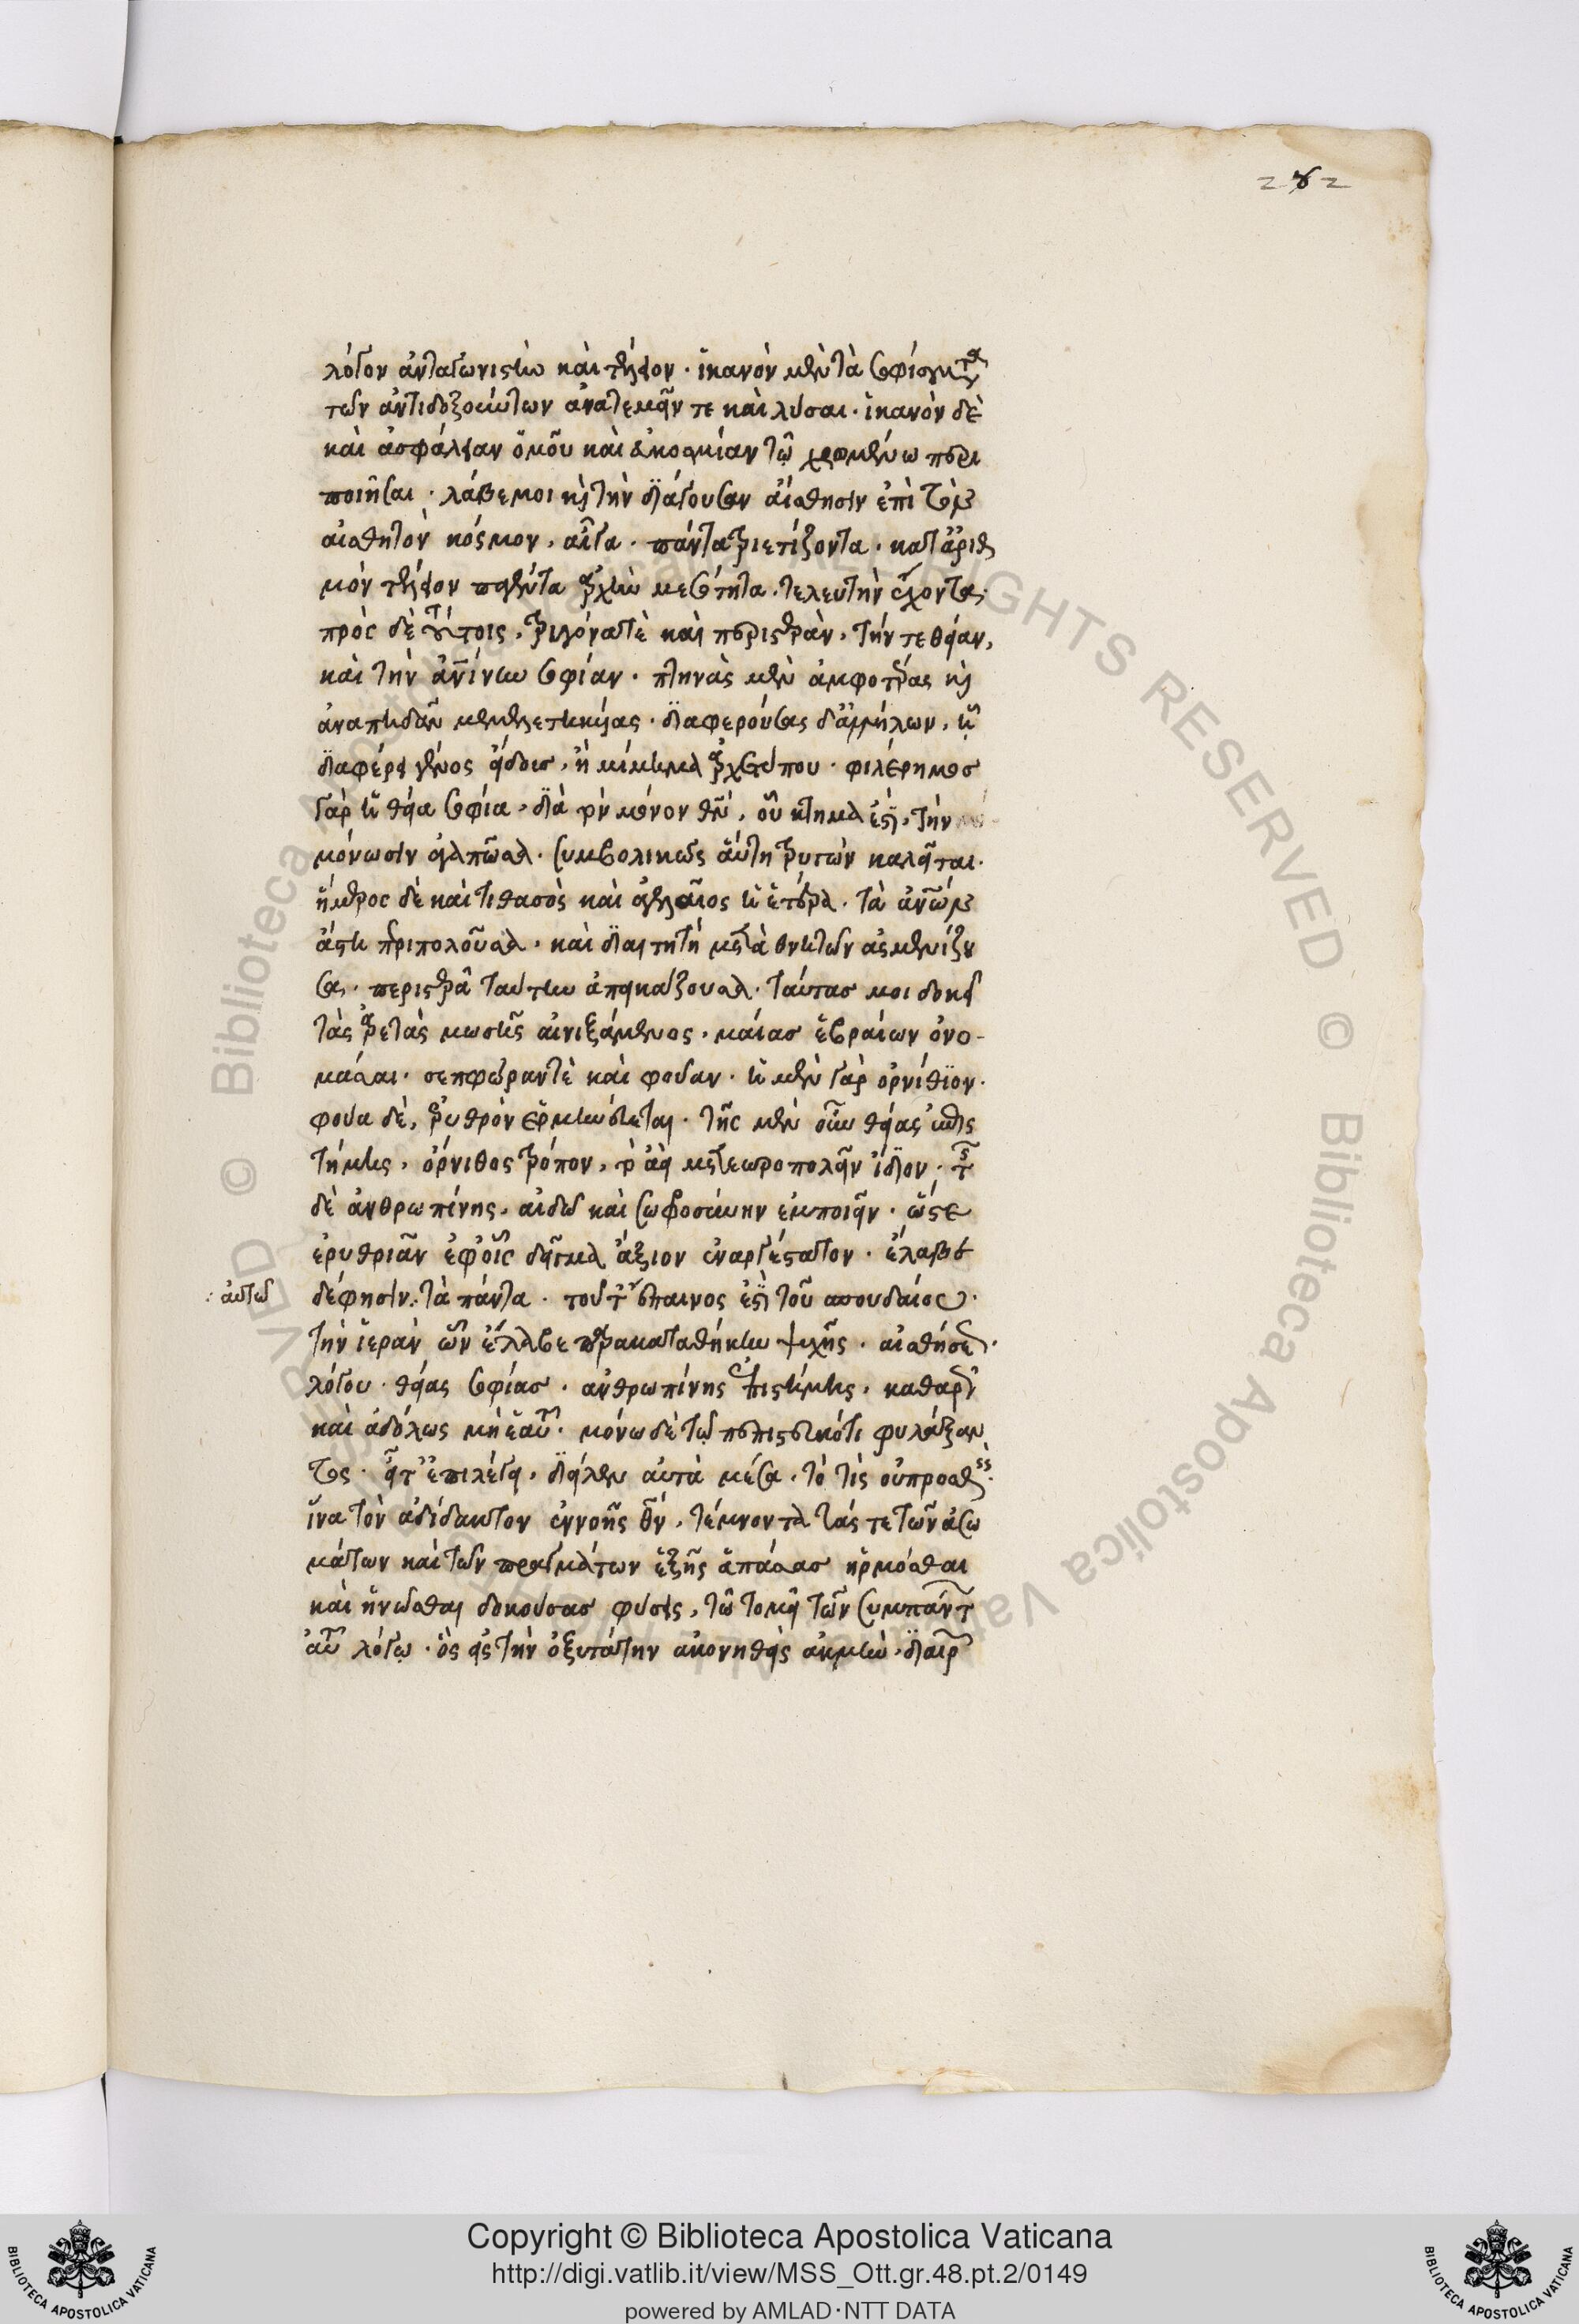 282
λόγον ἀνταγωνιστὴν καὶ τέλειον · ἱκανὸν μὲν τὰ σοφίσματα
τῶν ἀντιδοξούντων ἀνατεμεῖν τε καὶ λῦσαι · ἱκανὸν δὲ
καὶ ἀσφάλειαν ὁμοῦ καὶ εὐκοσμίαν τῷ χρωμένω περι
ποιῆσαι · λάβε μοι καὶ τὴν διάγουσαν αἴσθησιν ἐπὶ τὸν
αἰσθητὸν κόσμον, αἶγα · πάντα τριετίζοντα · κατ' ἀριθ
μὸν τέλειον παρέντα ἀρχὴν μεσότητα · τελευτὴν ἔχοντα ·
πρὸς δὲ τούτοις, τρυγόνα τὲ καὶ περιστερὰν, τήν τε θείαν,
καὶ τὴν ἀνθρωπίνην σοφίαν · πτηνὰς μὲν ἀμφοτέρας καὶ
ἀναπηδᾶν μεμελετηκυίας · διαφερούσας δ' ἀλλήλων, ᾗ
διαφέρει γένος εἴδους, ἢ μίμημα ἀρχετύπου · φιλέρημος
γὰρ ἡ θεία σοφία, διὰ τὸν μόνον θεόν, οὗ κτῆμά ἐστι, τὴν
μόνωσιν ἀγαπῶσα · συμβολικῶς αὕτη τρυγὼν καλεῖται ·
ἥμερος δὲ καὶ τιθασὸς καὶ ἀγελαῖος ἡ ἑτέρα · τὰ ἀνθρώπων
ἄστη περιπολοῦσα · καὶ διαίτῃ τῇ μετὰ θνητῶν ἀσμενίζου
σα · περιστερᾶ ταύτην ἀπεικάζουσα · ταύτας μοι δοκεῖ
τὰς ἀρετὰς μωσῆς αἰνιξάμενος · μαίας ἑβραίων ὀνο-
μάσαι · σεπφώραν τὲ καὶ φουάν · ἡ μὲν γὰρ ὀρνίθιον ·
φουὰ δὲ, ἐρυθρὸν ἑρμηνεύεται · τῆς μὲν οὖν θείας ἐπισ
τήμης, ὄρνιθος τρόπον, τὸ ἀεὶ μετεωροπολεῖν ἴδιον · τῆς
δὲ ἀνθρωπίνης, αἰδῶ καὶ σωφροσύνην ἐμποιεῖν · ὥστε
ἐρυθριᾶν ἐφ' οἷς δεῖγμα ἄξιον ἐναργέστατον · ἔλαβε
αὐτῷ
δέ φησίν ∴ τὰ πάντα · τοῦτ' ἔπαινος ἐστὶ τοῦ σπουδαίου ·
τὴν ἱερὰν ὧν ἔλαβε παρακαταθήκην ψυχῆς · αἰσθήσεως ·
λόγου · θείας σοφίας · ἀνθρωπίνης ἐπιστήμης · καθαρῶς
καὶ ἀδόλως μὴ ἑαυτῷ · μόνω δὲ τῷ πεπιστευκότι φυλάξαν
τος · εἶτ' ἐπιλέγει, διεῖλεν αὐτὰ μέσα · τὸ τίς οὐ προσθείς
ἵνα τὸν ἀδίδακτον ἐννοῇς θεόν, τέμνοντα τάς τε τῶν ἀσω
μάτων καὶ τῶν πραγμάτων ἑξῆς ἁπάσας ἡρμόσθαι
καὶ ἡνῶσθαι δοκούσας φύσεις, τῷ τομεῖ τῶν συμπάντων
αὑτοῦ λόγῳ · ὃς εἰς τὴν ὀξυτάτην ἀκονηθεὶς ἀκμὴν, διαιρ
Copyright © Biblioteca Apostolica Vaticana
http://digi.vatlib.it/view/MSS_Ott.gr.48.pt.2/0149
powered by AMLAD·NTT DATA